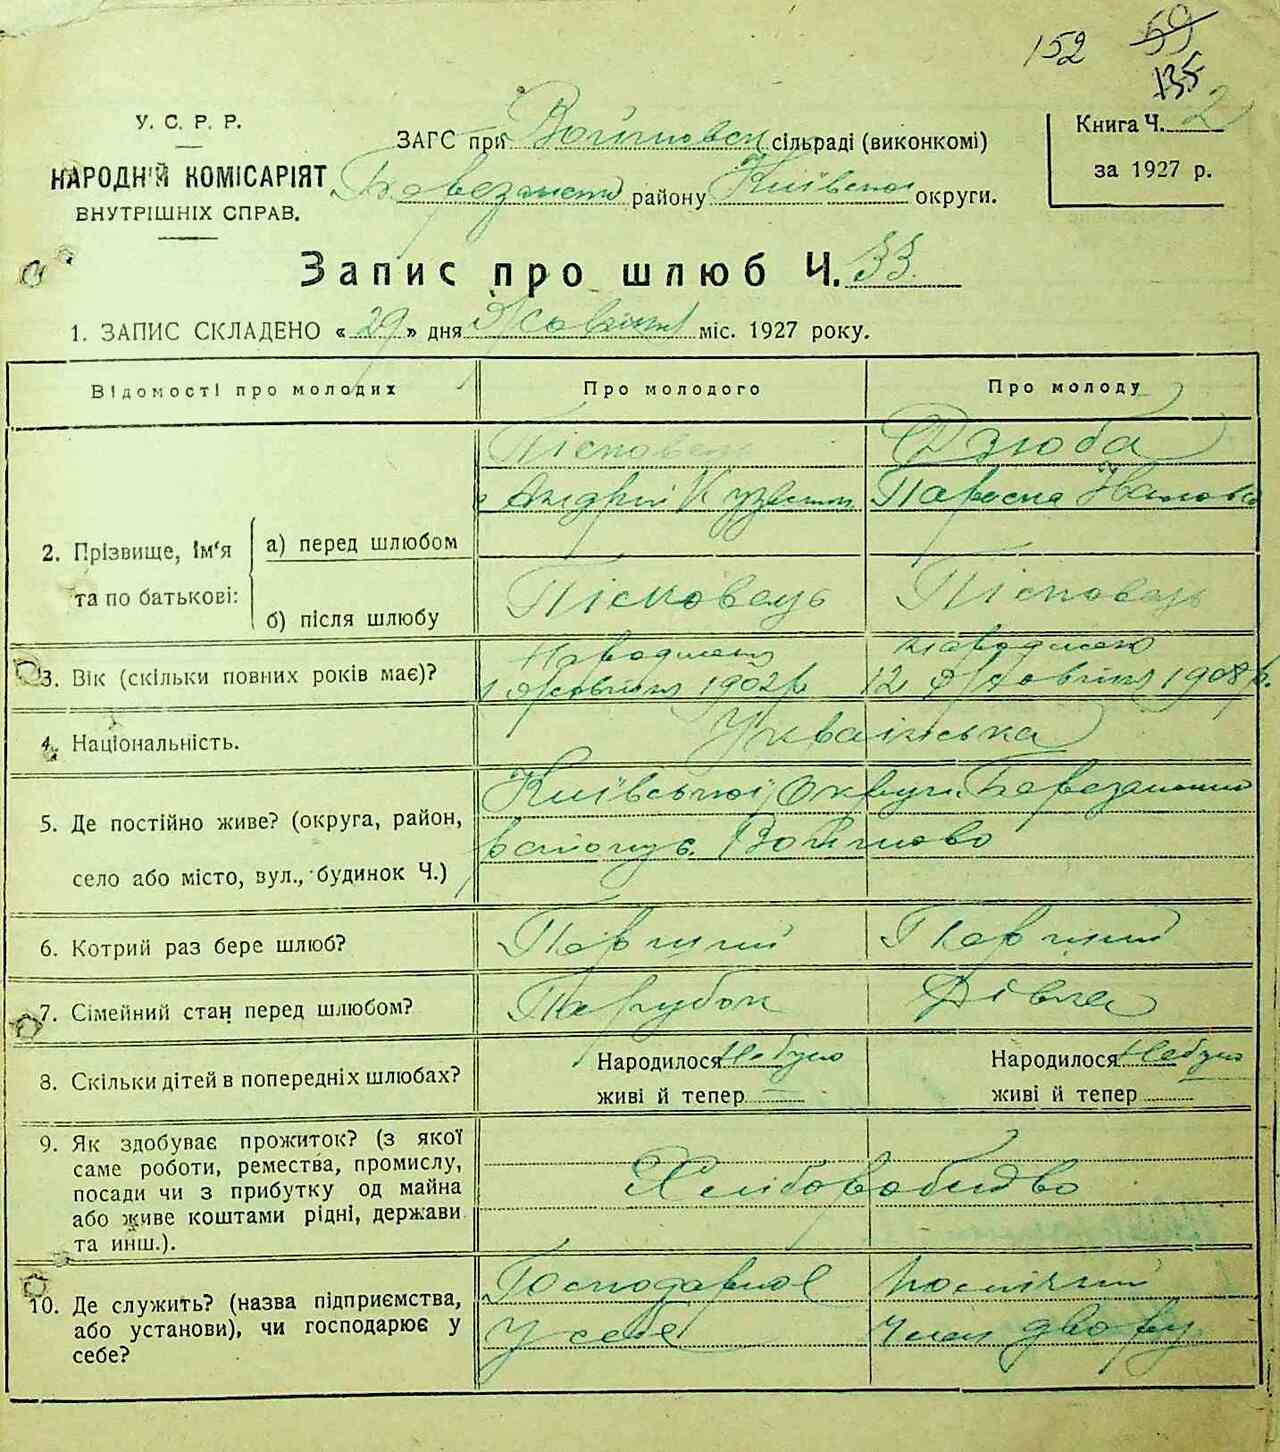 152 59
135
У. С. Р. Р.
НАРОДНІЙ КОМІСАРІЯТ
ВНУТРІШНІХ СПРАВ.
ЗАГС при Войтовськ сільраді (виконкомі)
Березанськ району Київської округи.
Книга Ч. 2
за 1927 р.
Запис про шлюб Ч. 33.
1. ЗАПИС СКЛАДЕНО « 29 » дня Жовтня міс. 1927 року.
Відомості про молодих Про молодого Про молоду
2. Прізвище, ім'я та по батькові:
а) перед шлюбом
Пісковець Дзюба
Андрій Кузьмич Параска Іванова
б) після шлюбу Пісковець Пісковець
3. Вік (скільки повних років має)?
Народжено Народжено
1 Жовтня 1902 р. 12 Жовтня 1908 р.
4. Національність. Українська
5. Де постійно живе? (округа, район,
село або місто, вул., будинок Ч.)
Київської Округи Березанськ
району с. Войтово
6. Котрий раз бере шлюб? Перший Перший
7. Сімейний стан перед шлюбом? Парубок Дівка
8. Скільки дітей в попередніх шлюбах?
Народилося Небуло Народилося Небуло
живі й тепер живі й тепер
9. Як здобуває прожиток? (з якої
саме роботи, ремества, промислу,
посади чи з прибутку од майна
або живе коштами рідні, держави
та инш.).
Хліборобство
10. Де служить? (назва підприємства,
або установи), чи господарює у
себе?
Господарює помічний
У себе член двору